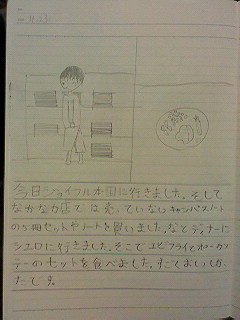 今日ジョイフル本田に行きました。そして
なかなか店では売っていないキャンパスノート
の5冊セットやノートを買いました。あとディナーに
シエロに行きました。そこでエビフライとポークソ
テーのセットを食べました。すごくおいしか
たです。